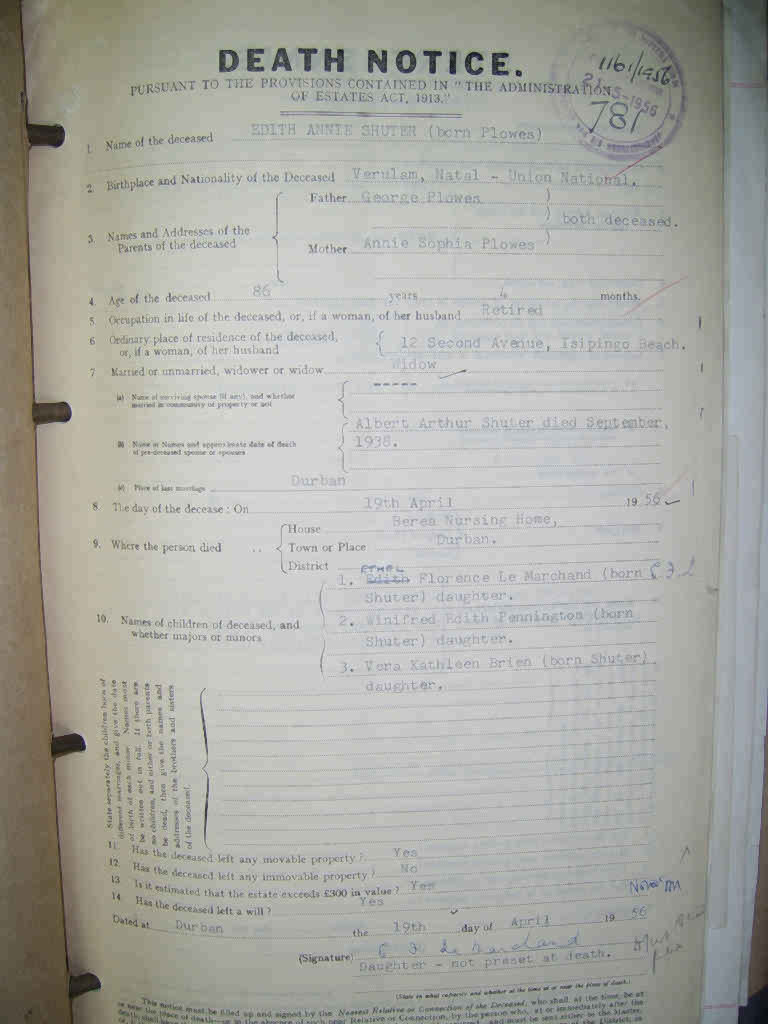 1161/1956
21-5-1956
781
DEATH NOTICE.
PURSUANT TO THE PROVISIONS CONTAINED IN "THE ADMINISTRATION
OF ESTATES ACT, 1913."
1. Name of the deceased EDITH ANNIE SHUTER (born Plowes)
2. Birthplace and Nationality of the Deceased Verulam, Natal - Union National.
3. Names and Addresses of the Parents of the deceased
Father George Plowes )
) both deceased.
Mother Annie Sophia Plowes )
4. Age of the deceased 86 years 4 months.
5 Occupation in life of the deceased, or, if a woman, of her husband Retired
6 Ordinary place of residence of the deceased, or, if a woman, of her husband 12 Second Avenue, Isipingo Beach.
7 Married or unmarried, widower or widow Widow
(a) Name of surviving spouse (if any), and whether married in community of property or not -----
(b) Name or Names and approximate date of death of pre-deceased spouse or spouses
Albert Arthur Shuter died September,
1938.
(c) Place of last marriage Durban
8 The day of the decease : On 19th April 1956
9. Where the person died .. House Berea Nursing Home,
Town or Place Durban.
District
10. Names of children of deceased, and whether majors or minors
ETHEL
1. Edith Florence Le Marchand (born
Shuter) daughter.
2. Winifred Edith Pennington (born
Shuter) daughter.
3. Vera Kathleen Brien (born Shuter)
daughter.
State separately the children born of
different marriages, and give the date
of birth of each minor. Names must
be written out in full. If there are
no children, and either or both parents
be dead, then give the names and
addresses of the brothers and sisters
of the deceased.
11. Has the deceased left any movable property ? Yes
12. Has the deceased left any immovable property ? No
13 Is it estimated that the estate exceeds £300 in value ? Yes
14. Has the deceased left a will ? Yes
Dated at Durban the 19th day of April 1956
(Signature) E F Le Marchand
Daughter - not preset at death.
(State in what capacity and whether at the time at or near the place of death.)
This notice must be filled up and signed by the Nearest Relative or Connection of the Deceased, who shall at the time, be at
or near the place of death—or in the absence of such near Relative or Connection, by the person who, at or immediately after the